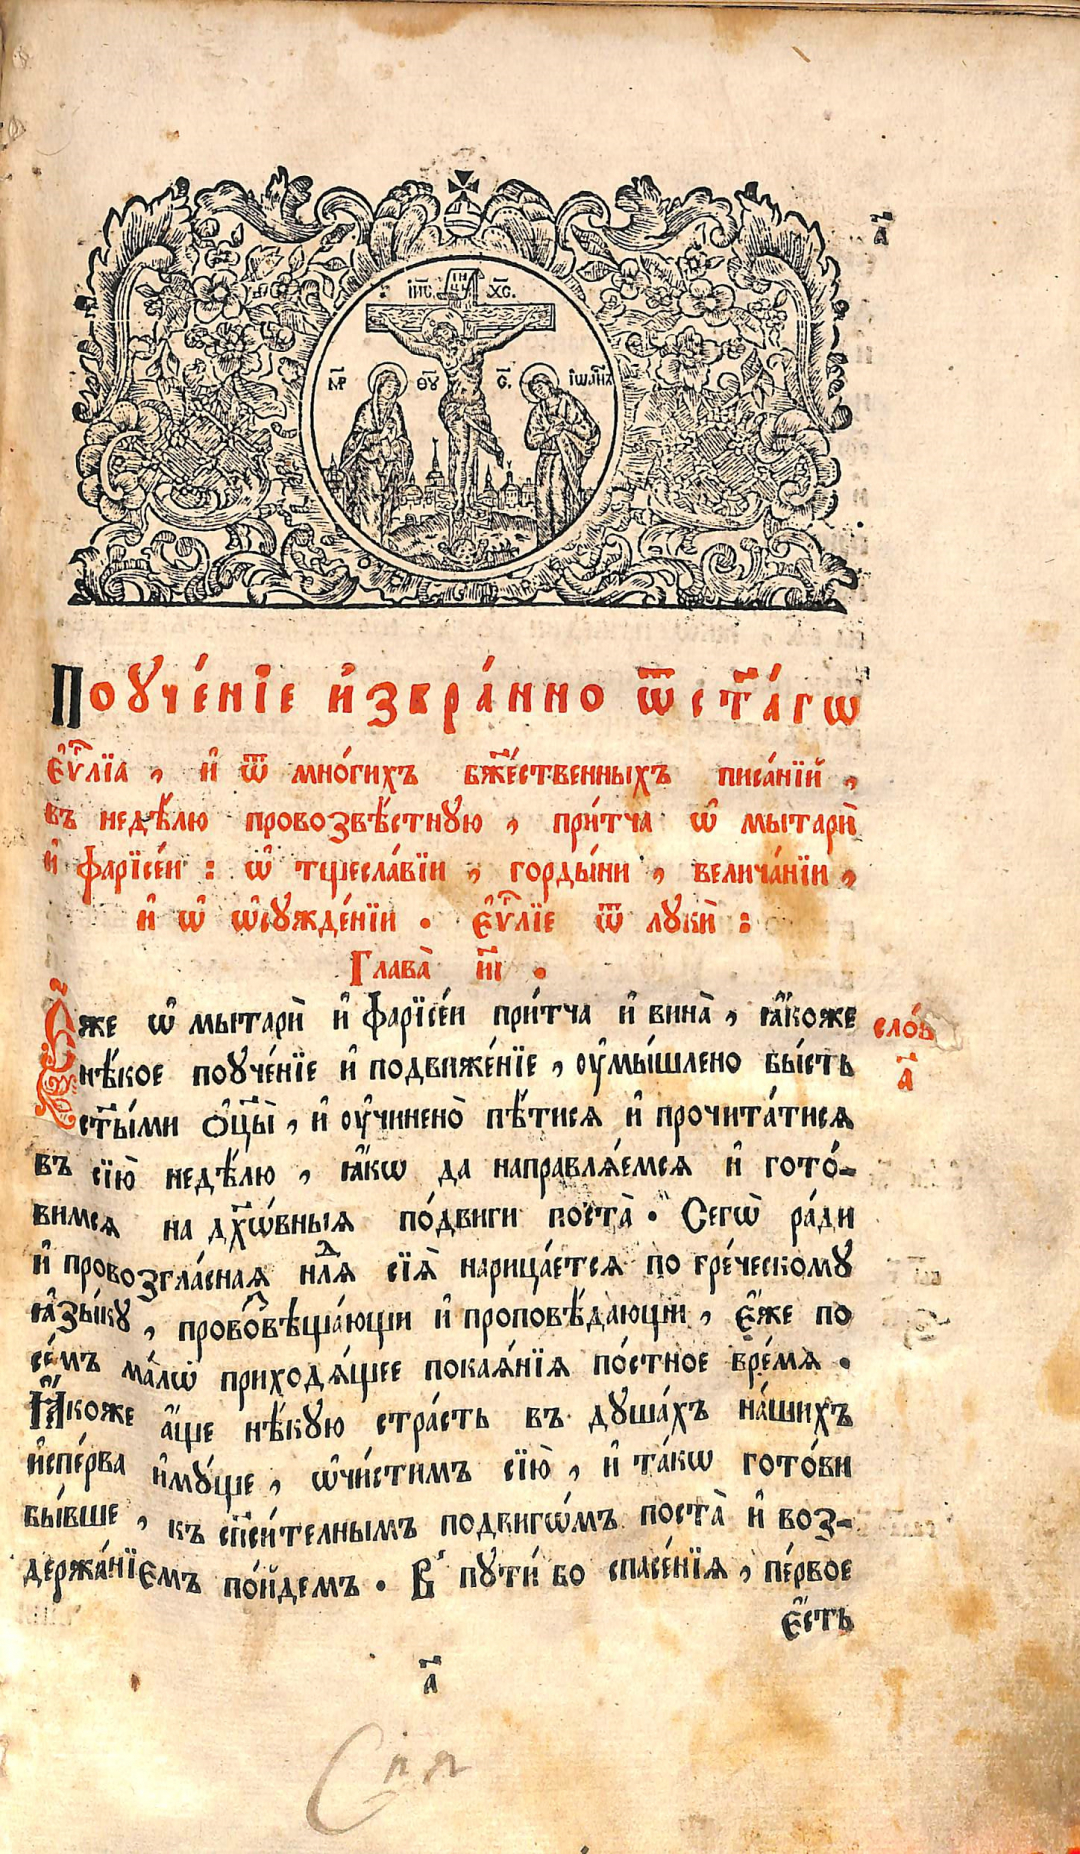 а҃
І҆И҃С. ІНЦІ Х҃С.
М҃Р Ѳ҃Ꙋ С҃. ІѠАНЪ
Поꙋче́нїе и҆збра́нно ѿ ст҃а́гѡ
є҆ѵⷢ҇лїа , и҆ ѿ мно́гихъ бж҃е́ственныхъ писа́нїй ,
въ недѣ́лю провозвѣ́стнꙋю , при́тча ѡ҆ мытарѝ
и҆ фарїсе́и : ѡ҆ тщесла́вїи , горды́ни , велича́нїи ,
и҆ ѡ҆ ѡ҆сꙋжде́нїи . є҆ѵⷢ҇лїе ѿ лꙋкѝ :
Глава̀ и҃і .
Ꙗ҆́же ѡ҆ мытарѝ и҆ фарїсе́и при́тча и҆ вина̀ , ꙗ҆́коже
нѣ́кое поꙋче́нїе и҆ подвиже́нїе , ᲂу҆мы́шлено бы́сть
ст҃ы́ми ѻ҆ц҃ы̀ , и҆ ᲂу҆чинено̀ пѣ́тисѧ и҆ прочита́тисѧ
въ сїю̀ недѣ́лю , ꙗ҆́кѡ да направлѧ́емсѧ и҆ гото́-
вимсѧ на дх҃ѡ́вныѧ по́двиги поста̀ . Сегѡ̀ ра́ди
и҆ провозгла́снаѧ нлⷣѧ сїѧ̀ нарица́етсѧ по гре́ческомꙋ
ꙗ҆зы́кꙋ , провозвѣща́ющи и҆ проповѣ́дающи , є҆́же по
се́мъ ма́лѡ приходѧ́щее покаѧ́нїѧ по́стное вре́мѧ .
Ꙗ҆́коже а҆́ще нѣ́кꙋю стра́сть въ дꙋша́хъ на́шихъ
и҆спе́рва и҆мꙋ́ще , ѡ҆чи́стимъ сїю̀ , и҆ та́кѡ гото́ви
бы́вше , къ сп҃си́телнымъ подвигѡ́мъ поста̀ и҆ воз-
держа́нїемъ по́йдемъ . В' пꙋти́ бо спасе́нїѧ , пе́рвое
є҆́сть
сло́в
а҃
а҃